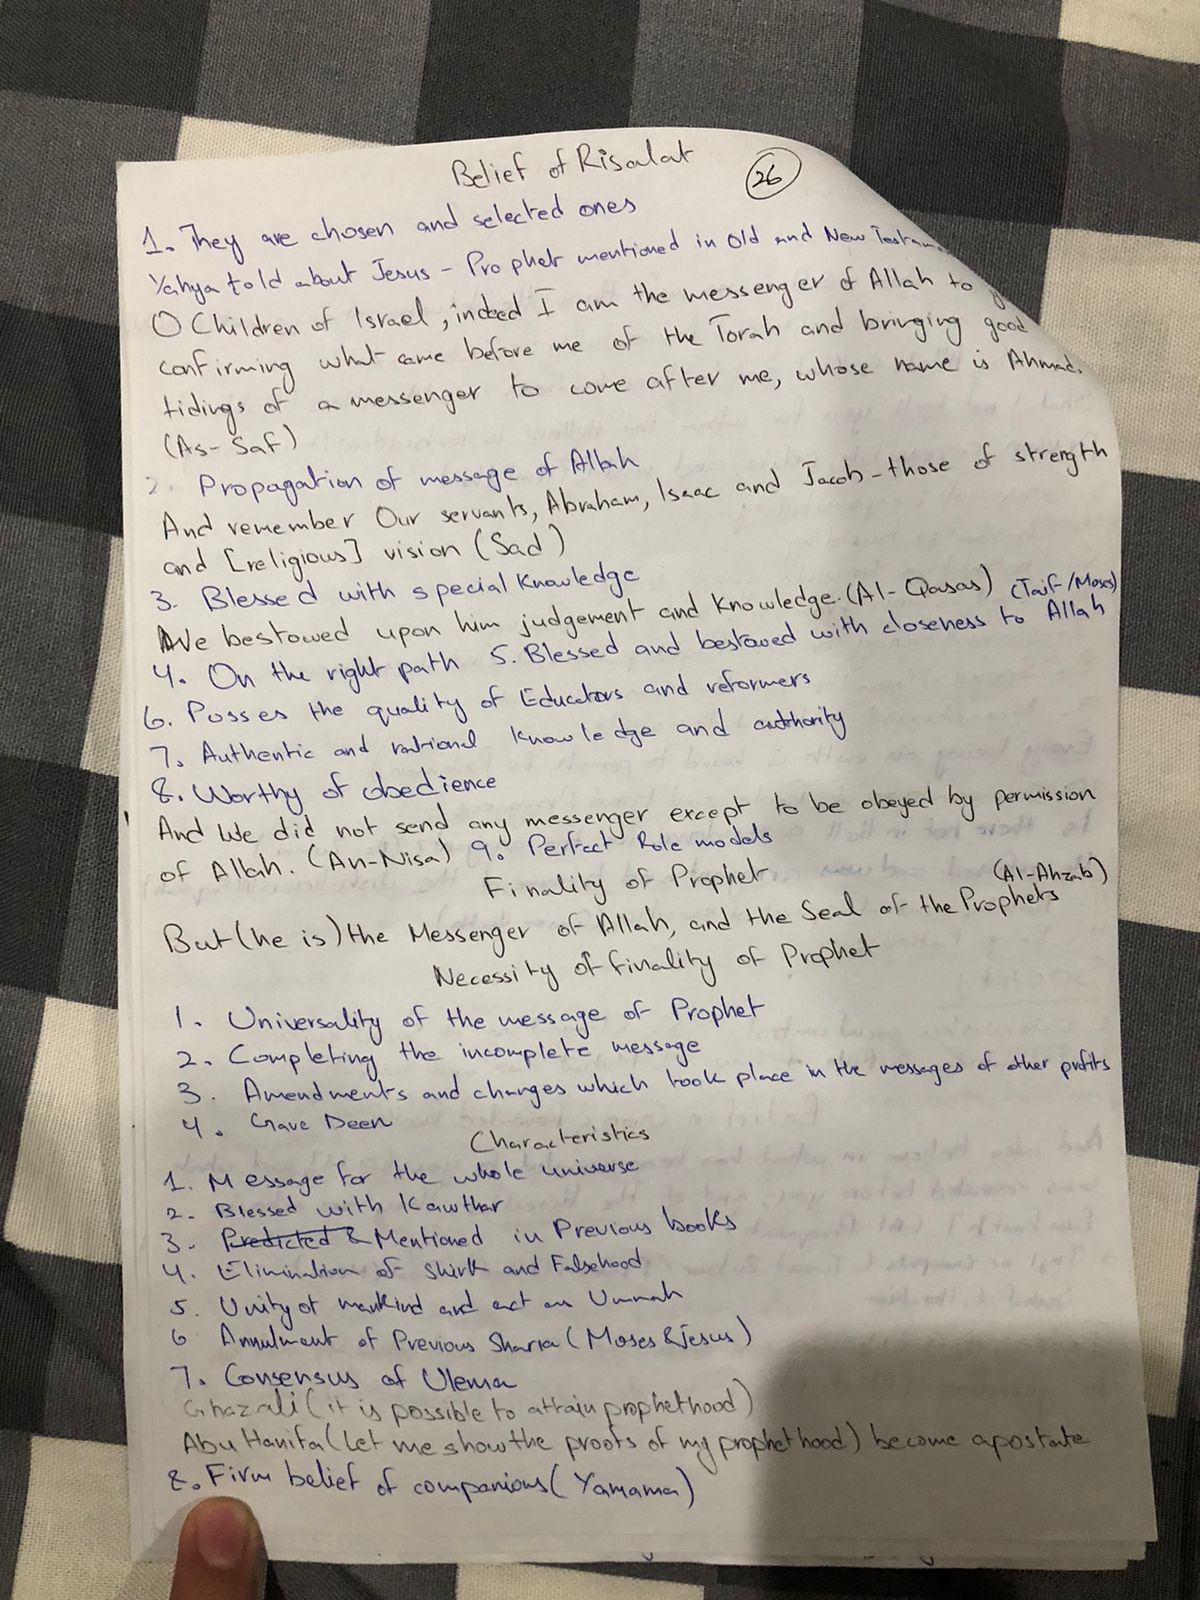 Belief of Risalat
26
1. They are chosen and selected ones
Yahya told about Jesus - Prophet mentioned in Old and New
O Children of Israel, indeed I am the messenger of Allah to
confirming what came before me of the Torah and bringing good
tidings of a messenger to come after me, whose name is Ahmad.
(As-Saf)
2. Propagation of message of Allah
And remember Our servants, Abraham, Isaac and Jacob - those of strength
and [religious] vision (Sad)
3. Blessed with special Knowledge
We bestowed upon him judgement and Knowledge. (Al-Qasas) (Taif/Moses)
4. On the right path 5. Blessed and bestowed with closeness to Allah
6. Posses the quality of Educators and reformers
7. Authentic and rational knowledge and authority
8. Worthy of obedience
And We did not send any messenger except to be obeyed by permission
of Allah. (An-Nisa) 9. Perfect Role models
Finality of Prophet (Al-Ahzab)
But (he is) the Messenger of Allah, and the Seal of the Prophets
Necessity of finality of Prophet
1. Universality of the message of Prophet
2. Completing the incomplete message
3. Amendments and changes which took place in the messages of other profits
4. Gave Deen
Characteristics
1. Message for the whole universe
2. Blessed with Kawthar
3. Predicted & Mentioned in Previous books
4. Elimination of Shirk and Falsehood
5. Unity of mankind and act as Ummah
6 Annulment of Previous Sharia (Moses & Jesus)
7. Consensus of Ulema
Ghazali (it is possible to attain prophethood)
Abu Hanifa (let me show the proofs of my prophethood) become apostate
8. Firm belief of companions (Yamama)